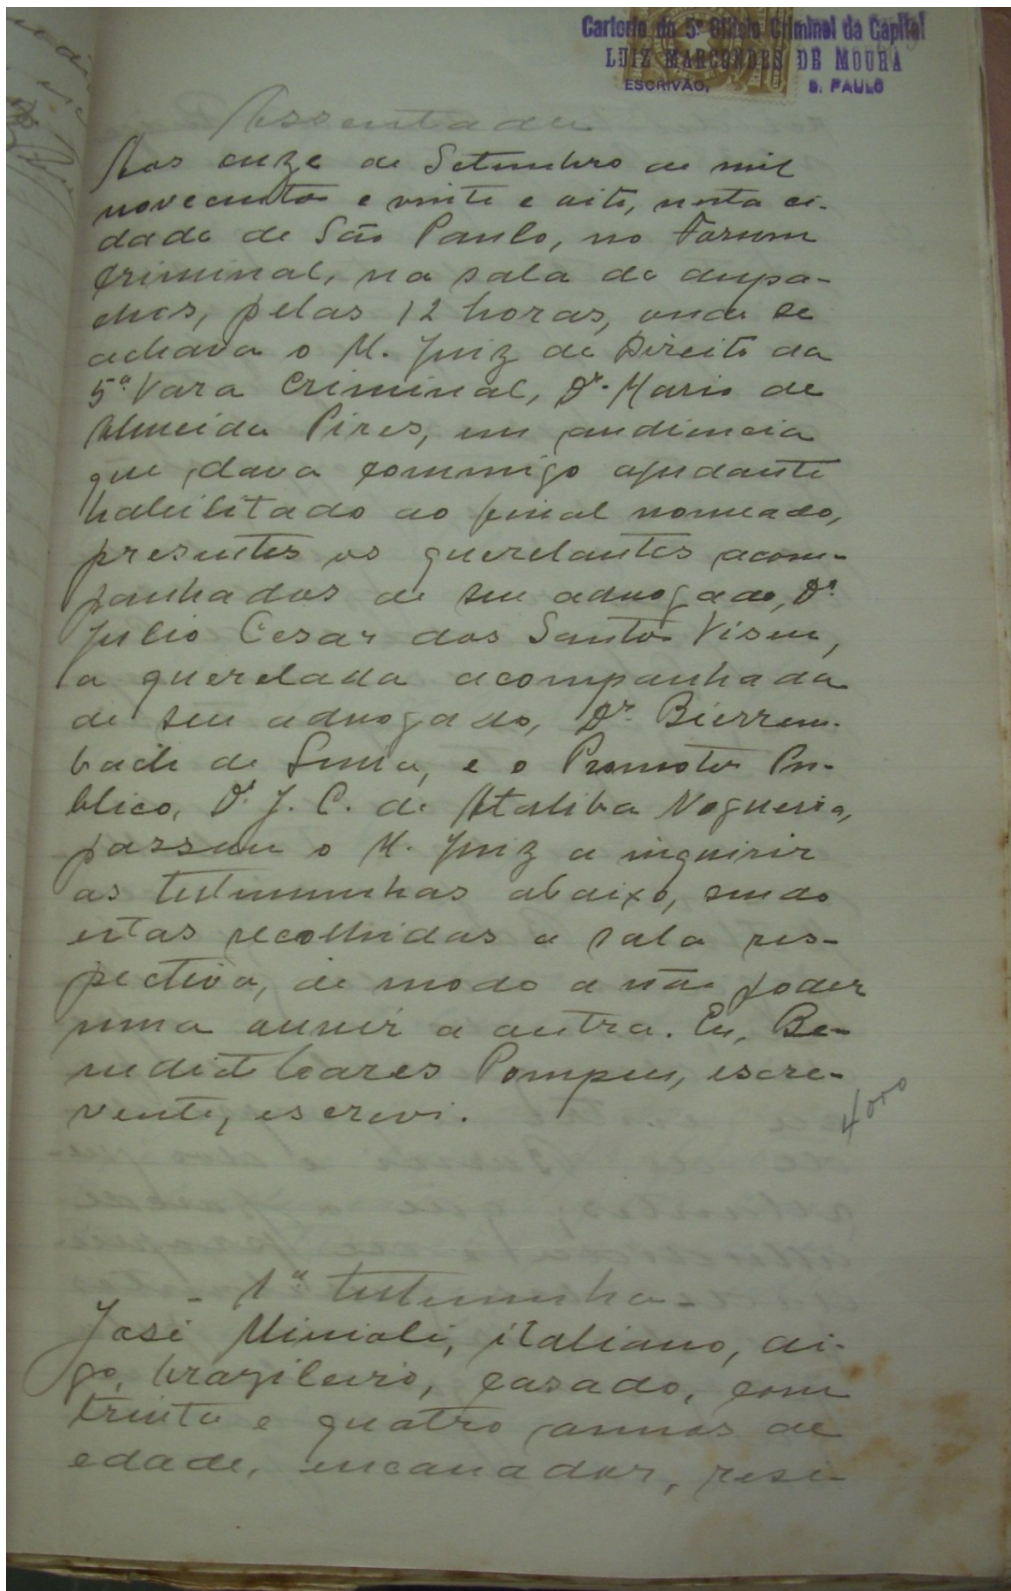 Cartorio do 5º Officio Criminal da Capital
LUIZ MARCONDES DE MOURA
ESCRIVÃO, S. PAULO
Assentada
Aos onze de Setembro de mil
novecentos e vinte e oito, nesta ci-
dade de São Paulo, no Forum
Criminal, na sala de despa-
chos, pelas 12 horas, onde se
achava o M. Juiz de Direito da
5ª Vara Criminal, Dr. Mario de
Almeida Pires, em audiencia
que dava commigo ajudante
habilitado ao final nomeado,
presentes os querelantes acom-
panhados de seu advogado, Dr.
Julio Cesar dos Santos Viseu,
a querelada acompanhada
de seu advogado, Dr. Bierrem-
bach de Lima, e o Promotor Pu-
blico, Dr. J. C. de Ataliba Nogueira,
passou o M. Juiz a inquirir
as testemunhas abaixo, sendo
estas recolhidas a sala res-
pectiva, de modo a não poder
uma ouvir a outra. Eu, Be-
nedicto Soares Pompeu, escre-
vente, escrevi.
4000
- 1ª testemunha -
José italiano, di-
go, brazileiro, casado, com
trinta e quatro annos de
edade, encanador, resi-